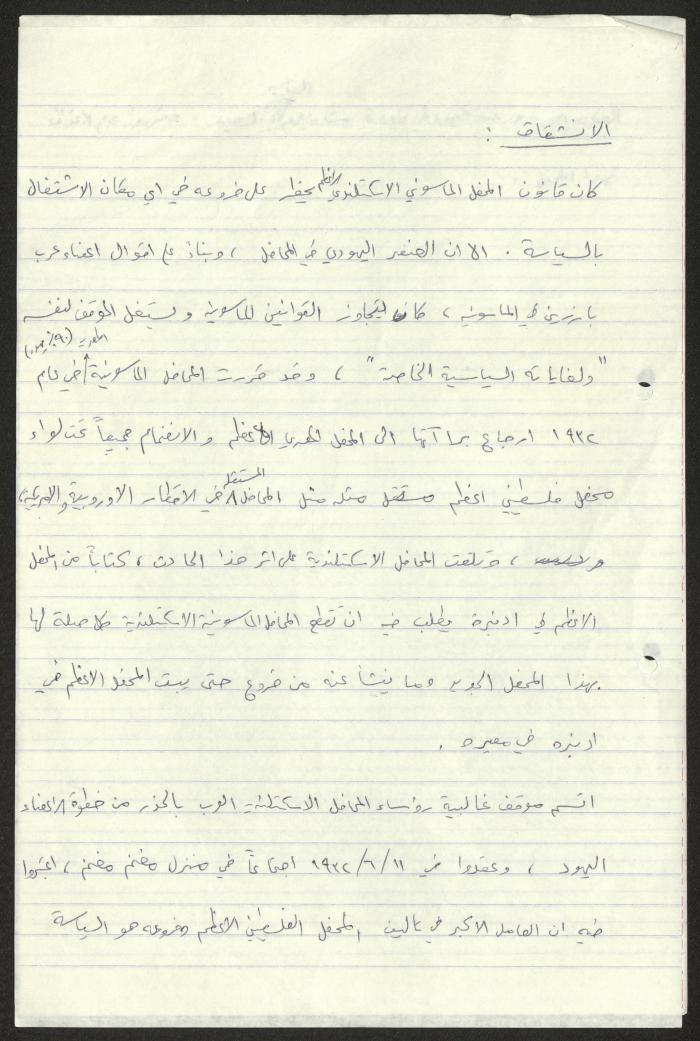 الانشقاق :
كان قانون المحفل الماسوني الاسكتلندي الاعظم يحظر على فروعه في اي مكان الاشتغال
بالسياسة . الا ان العنصر اليهودي في المحافل ، وبناءً على اقوال اعضاء عرب
بارزين في الماسونية ، كان يتجاوز القوانين الماسونية ويستغل الموقف لنفسه
"ولغاياته السياسية الخاصة" ، وقد قررت المحافل الماسونية المصرية (٩٠٪ يهود) في عام
١٩٣٢ ارجاع براآتها الى المحفل المصري الاعظم والانضمام جميعاً تحت لواء
محفل فلسطيني اعظم مستقل مثله مثل المحافل المستقلة في الاقطار الاوروبية والامريكية
، وتلقت المحافل الاسكتلندية على اثر هذا الحادث ، كتاباً من المحفل
الاعظم في ادنبرة يطلب فيه ان تقطع المحافل الماسونية الاسكتلندية كل صلة لها
بهذا المحفل الجديد وما ينشأ عنه من فروع حتى يبت المحفل الاعظم في
ادنبره في مصيره .
اتسم موقف غالبية رؤساء المحافل الاسكتلندية العرب بالحذر من خطوة الاعضاء
اليهود ، وعقدوا في ١١/٦/١٩٣٢ اجتماعاً في منزل مغنم مغنم ، اعتبروا
فيه ان العامل الاكبر في تأليف المحفل الفلسطيني الاعظم وفروعه هو السياسة